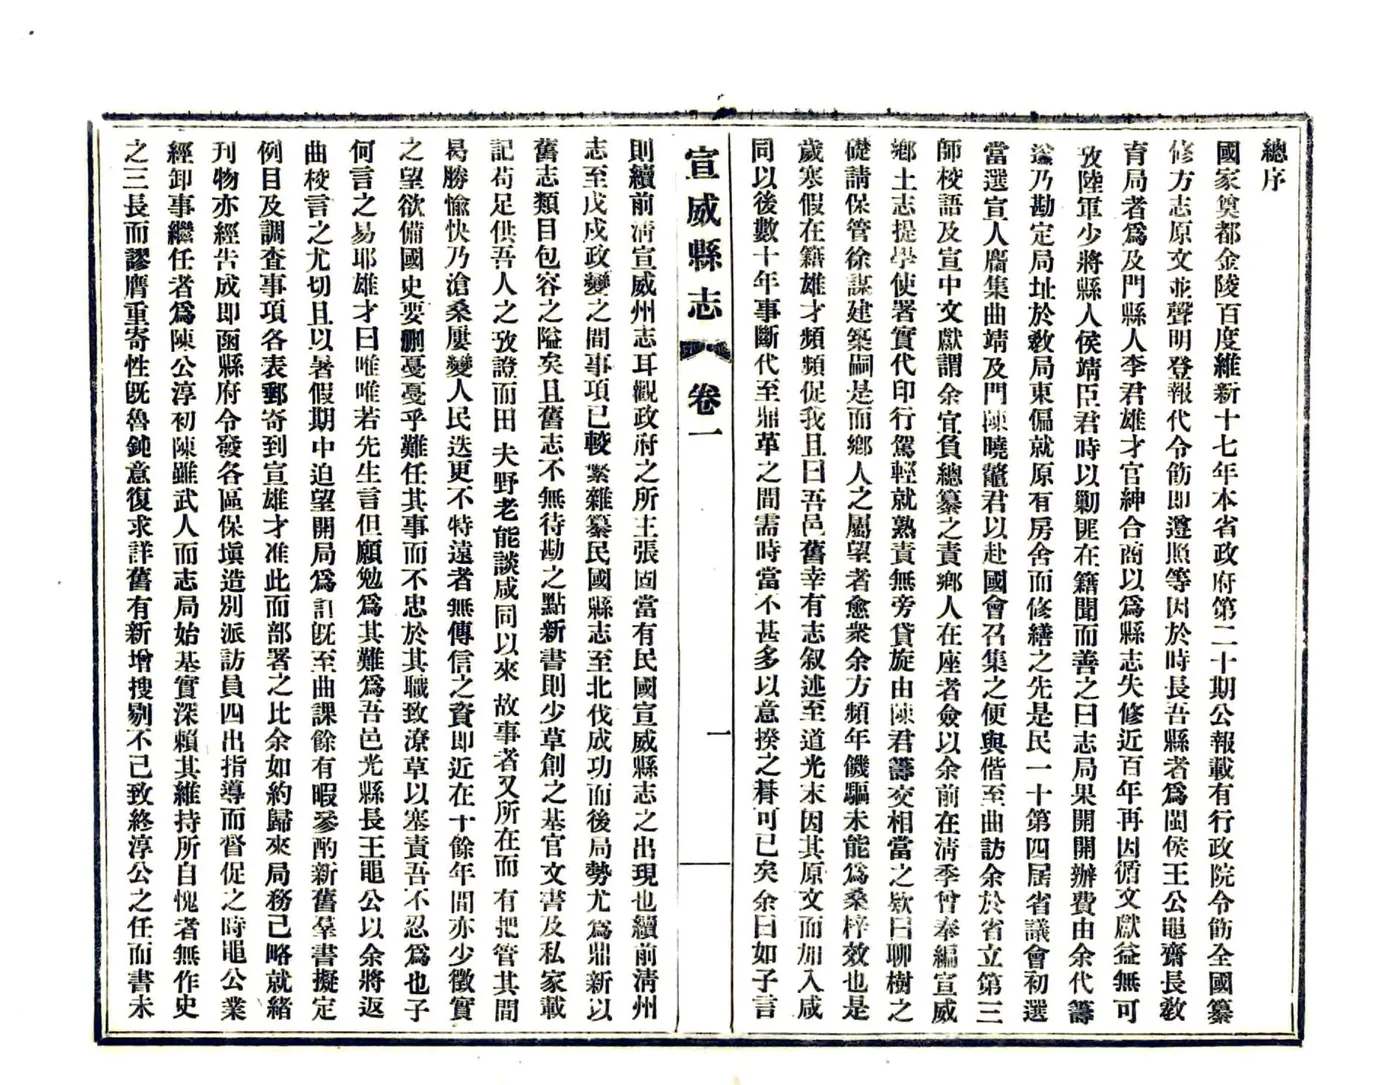 總序
國家奠都金陵百度維新十七年本省政府第二十期公報載有行政院令飭全國纂
修方志原文並聲明登報代令飭即遵照等因於時長吾縣者爲閩侯王公黽齋長敎
育局者爲及門縣人李君雄才官紳合商以爲縣志失修近百年再因循文獻益無可
攷陸軍少將縣人侯靖臣君時以勦匪在籍聞而善之曰志局果開開辦費由余代籌
遂乃勘定局址於敎局東偏就原有房舍而修繕之先是民一十第四屆省議會初選
當選宣人麕集曲靖及門陳曉鼇君以赴國會召集之便與偕至曲訪余於省立第三
師校語及宣中文獻謂余宜負總纂之責鄉人在座者僉以余前在淸季曾奉編宣威
鄉土志提學使署實代印行駕輕就熟責無旁貸旋由陳君籌交相當之欵曰聊樹之
礎請保管徐謀建築嗣是而鄉人之屬望者愈衆余方頻年饑驅未能爲桑梓效也是
歲寒假在籍雄才頻頻促我且曰吾邑舊幸有志叙述至道光末因其原文而加入咸
同以後數十年事斷代至鼎革之間需時當不甚多以意揆之朞可已矣余曰如子言
宣威縣志 卷一 一
則續前淸宣威州志耳觀政府之所主張固當有民國宣威縣志之出現也續前淸州
志至戊戌政變之間事項已較繁雜纂民國縣志至北伐成功而後局勢尤爲鼎新以
舊志類目包容之隘矣且舊志不無待勘之點新書則少草創之基官文書及私家載
記苟足供吾人之攷證而田夫野老能談咸同以來故事者又所在而有把管其間
曷勝愉快乃滄桑屢變人民迭更不特遠者無傳信之資即近在十餘年間亦少徵實
之望欲備國史要刪戞戞乎難任其事而不忠於其職致潦草以塞責吾不忍爲也子
何言之易耶雄才曰唯唯若先生言但願勉爲其難爲吾邑光縣長王黽公以余將返
曲校言之尤切且以暑假期中迫望開局爲訂旣至曲課餘有暇參酌新舊羣書擬定
例目及調查事項各表郵寄到宣雄才准此而部署之比余如約歸來局務已略就緖
刊物亦經告成即函縣府令發各區保塡造別派訪員四出指導而督促之時黽公業
經卸事繼任者爲陳公淳初陳雖武人而志局始基實深賴其維持所自愧者無作史
之三長而謬膺重寄性旣魯鈍意復求詳舊有新增搜剔不已致終淳公之任而書未